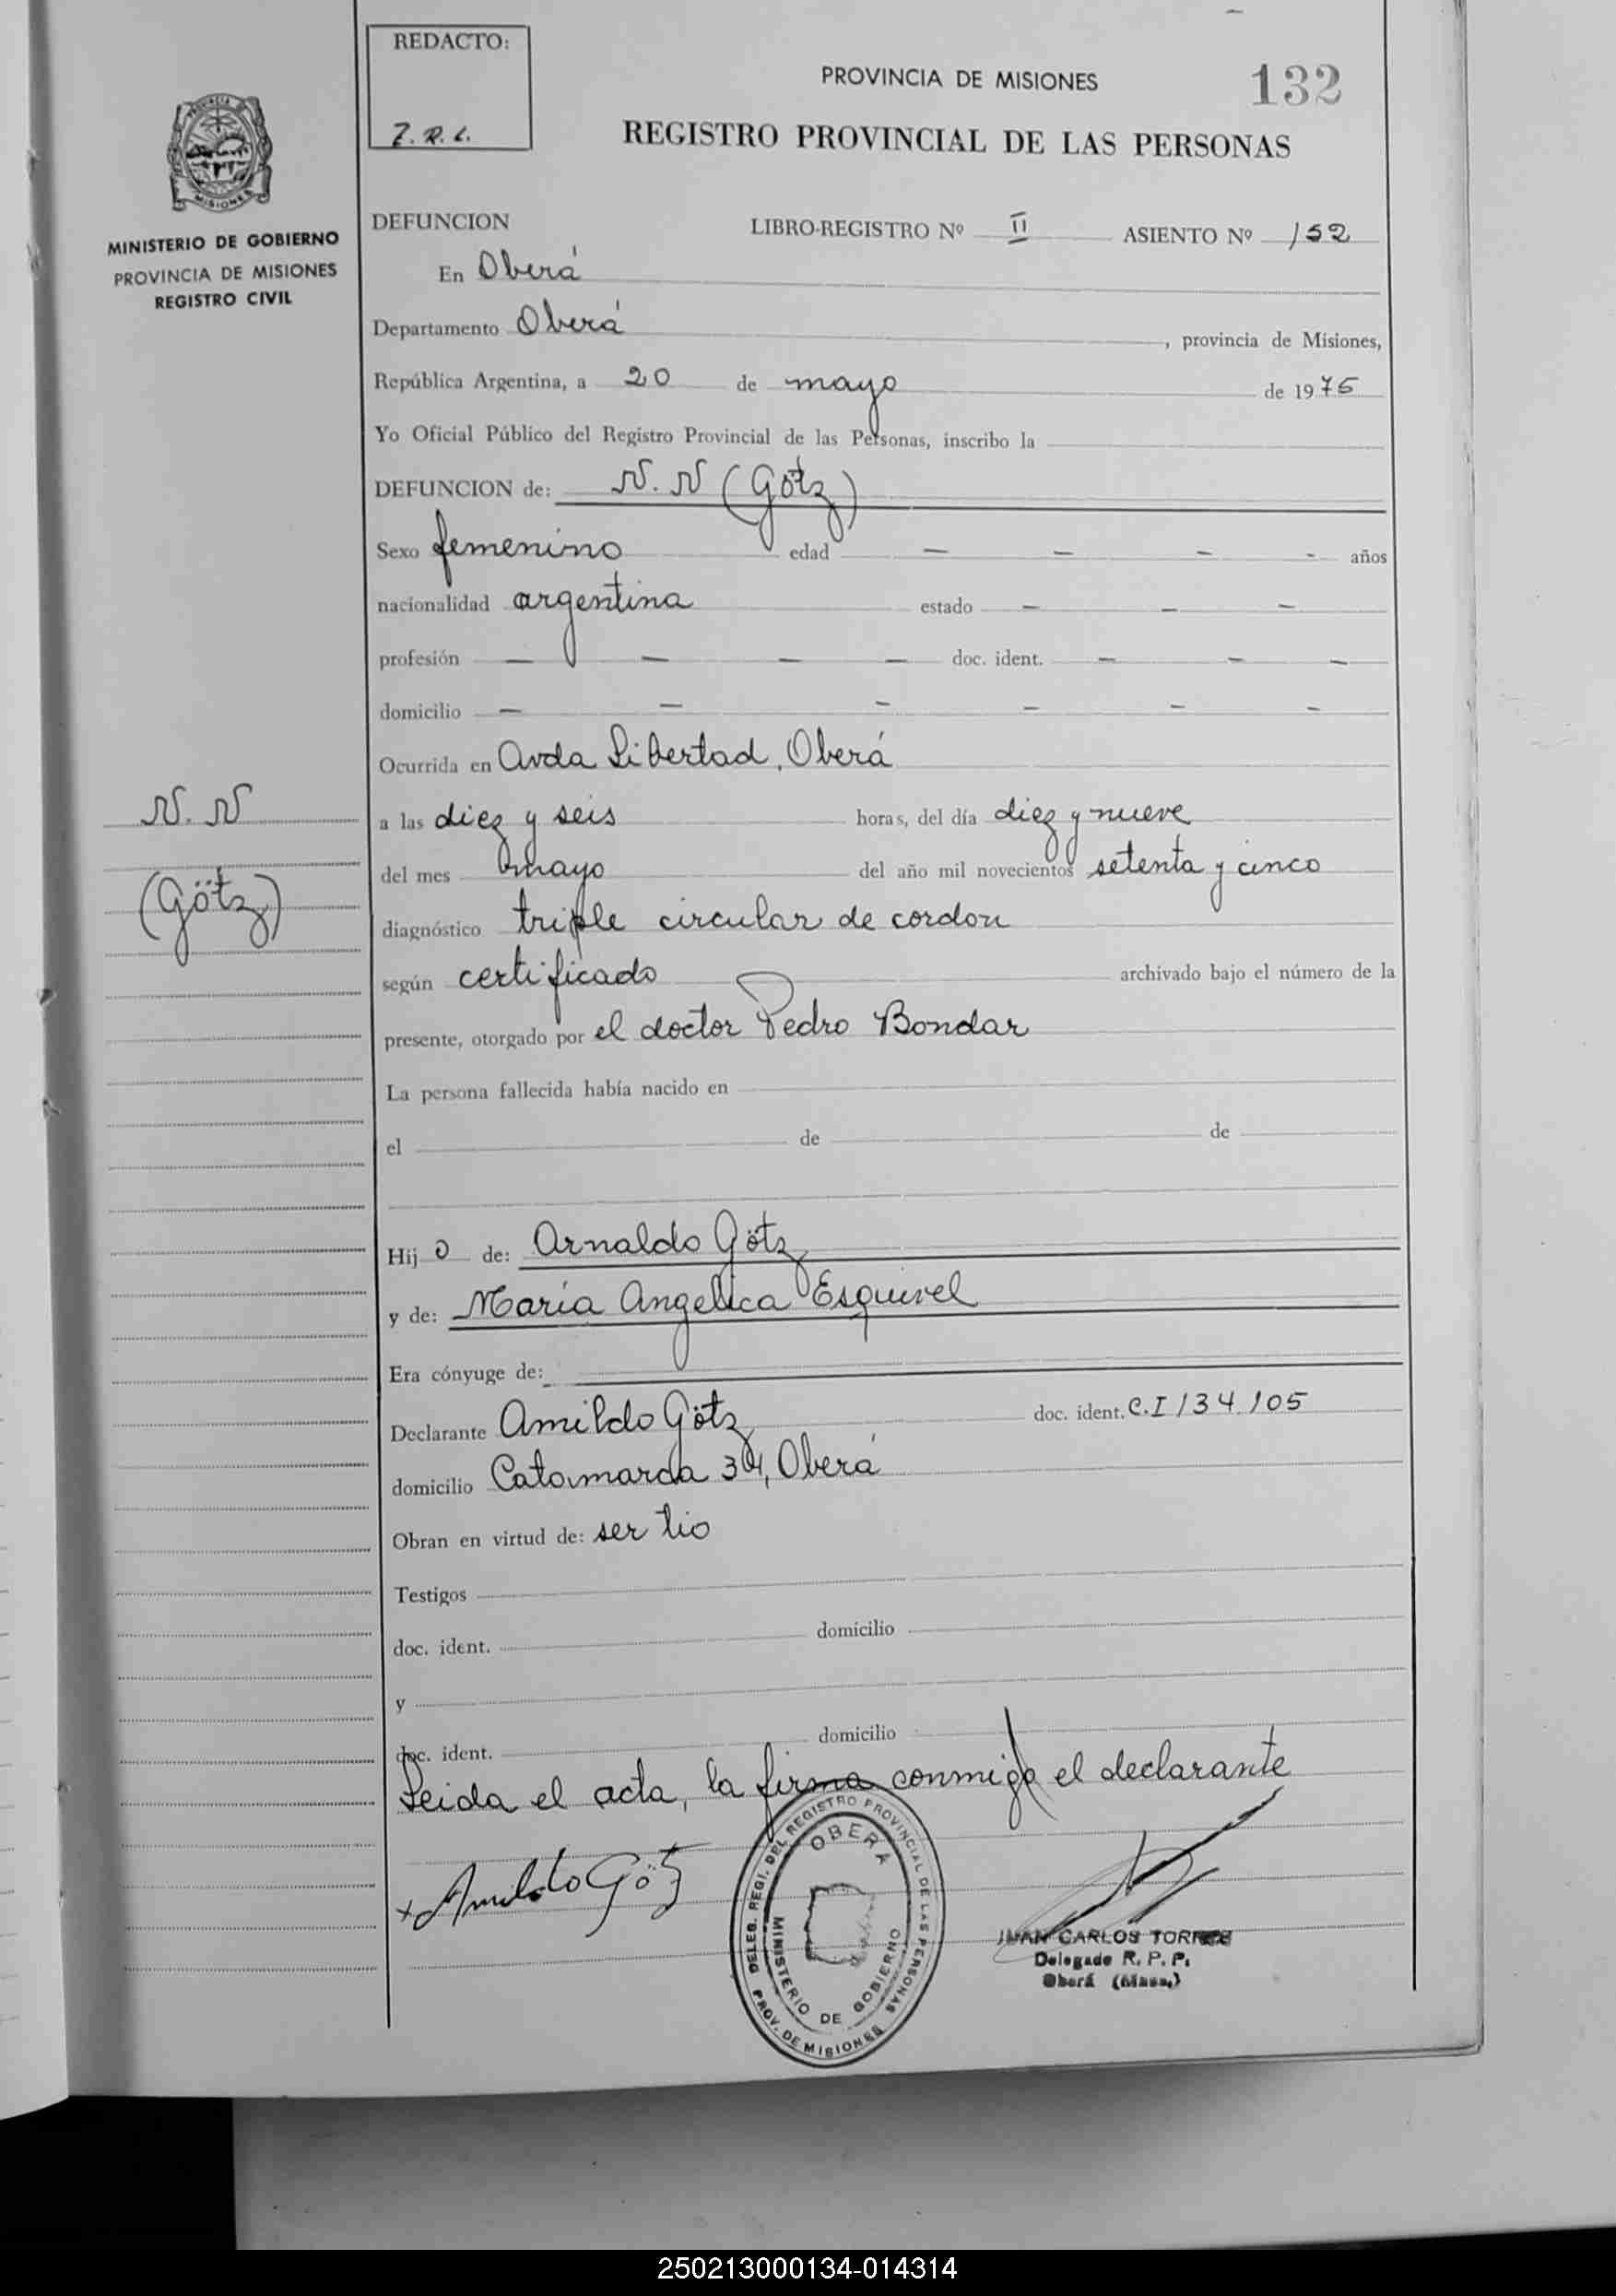 REDACTO:
Z. R. L.
PROVINCIA DE MISIONES
132
REGISTRO PROVINCIAL DE LAS PERSONAS
MINISTERIO DE GOBIERNO
PROVINCIA DE MISIONES
REGISTRO CIVIL
DEFUNCION LIBRO-REGISTRO Nº II ASIENTO Nº 152
En Oberá
Departamento Oberá , provincia de Misiones,
República Argentina, a 20 de mayo de 1975
Yo Oficial Público del Registro Provincial de las Personas, inscribo la
DEFUNCION de: N. N (Götz)
Sexo femenino edad — — — - años
nacionalidad argentina estado — — —
profesión — — — — doc. ident. — — —
domicilio — — - — - -
Ocurrida en Avda Libertad, Oberá
N. N
(Götz)
a las diez y seis horas, del día diez y nueve
del mes mayo del año mil novecientos setenta y cinco
diagnóstico triple circular de cordon
según certificado archivado bajo el número de la
presente, otorgado por el doctor Pedro Bondar
La persona fallecida había nacido en
el de de
Hij o de: Arnaldo Götz
y de: María Angelica Esquivel
Era cónyuge de:
Declarante Amildo Götz doc. ident. C.I 134.105
domicilio Catamarca 34, Oberá
Obran en virtud de: ser tio
Testigos
doc. ident. domicilio
y
doc. ident. domicilio
Leida el acta, la firma conmigo el declarante
x Amildo Götz
DELEG. REGI. DEL REGISTRO PROVINCIAL DE LAS PERSONAS
PROV. DE MISIONES
OBERA
MINISTERIO DE GOBIERNO
JUAN CARLOS TORRES
Delegado R. P. P.
Oberá (Mnes.)
250213000134-014314